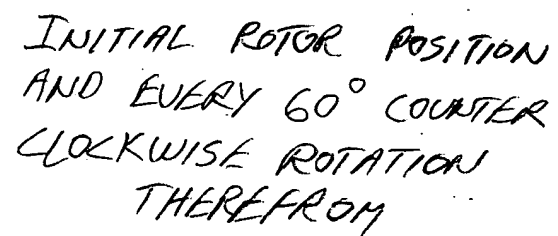 INITIAL ROTOR POSITION
AND EVERY 60° COUNTER
CLOCKWISE ROTATION
THEREFROM